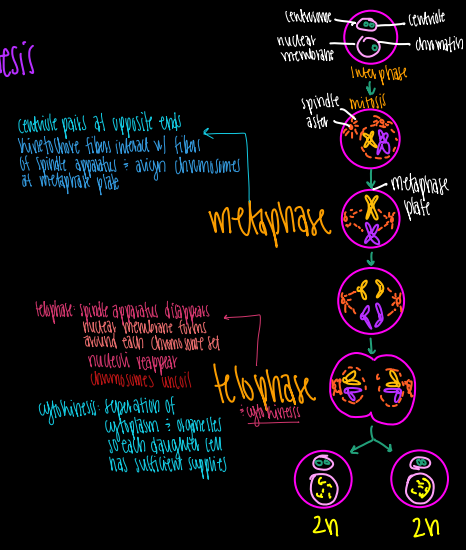 centrosome
centriole
nuclear membrane
chromatin
Interphase
mitosis
spindle
aster
centriole pairs at opposite ends
kinetochore fibers interact w/ fibers
of spindle apparatus = align chromosomes
at metaphase plate
metaphase
metaphase plate
telophase: spindle apparatus disappears
nuclear membrane forms
around each chromosome set
nucleoli reappear
chromosomes uncoil
telophase
= cytokinesis
cytokinesis: separation of
cytoplasm = organelles
so each daughter cell
has sufficient supplies
2n
2n